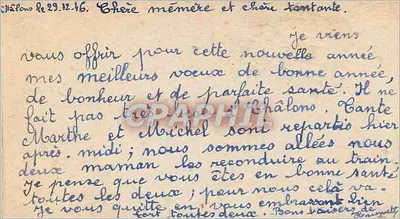 Châlons le 29.12.46. Chère mémère et chère tantante.
Je viens
vous offrir pour cette nouvelle année
mes meilleurs voeux de bonne année,
de bonheur et de parfaite santé. Il ne
fait pas très à Châlons. Tante
Marthe et Michel sont repartis hier
après-midi ; nous sommes allées nous
deux maman les reconduire au train.
Je pense que vous êtes en bonne santé
toutes les deux ; pour nous cela va.
Je vous quitte en vous embrassant bien
fort toutes deux. Bons baisers de
CPAPHIL